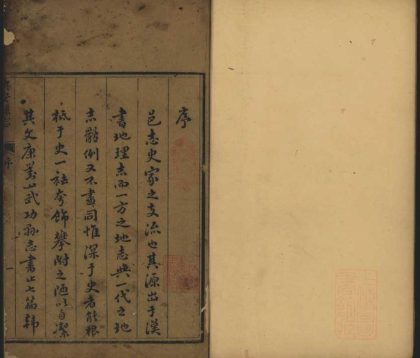 序
邑志史家之支流也其源出于漢
書地理志而一方之地志與一代之地
志體例又不盡同惟深于史者能根
柢于史一祛夸飾攀附之陋以自潔
其文康對山武功縣志書止七篇韓
序
一